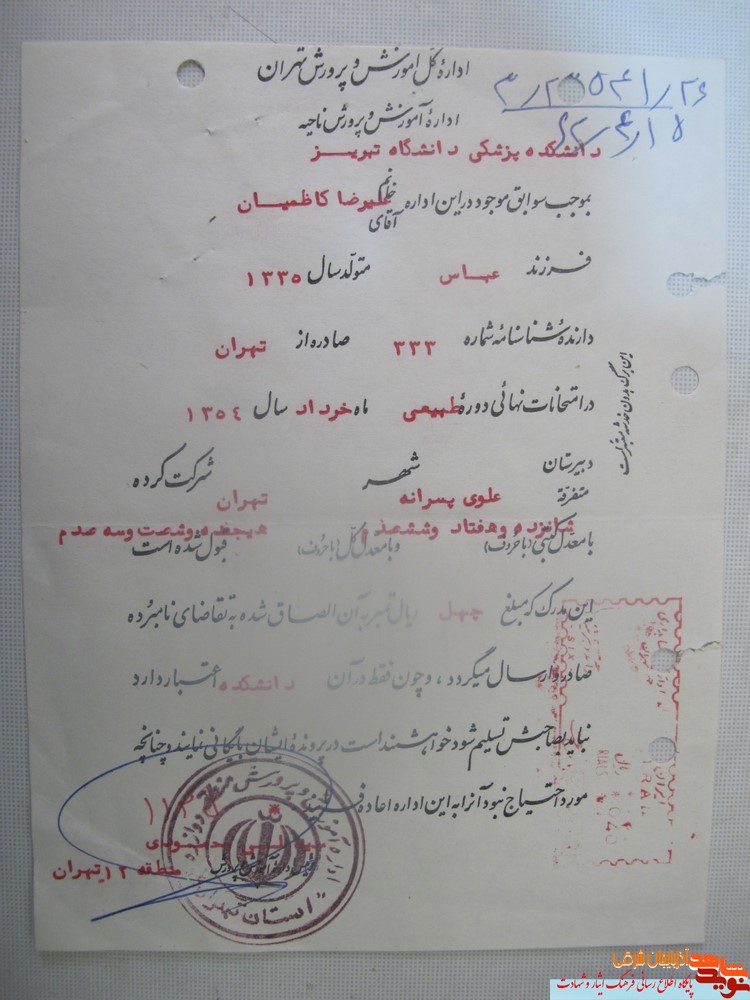 اداره کل آموزش و پرورش تهران
اداره آموزش و پرورش ناحیه
دانشکده پزشکی دانشگاه تبریز
بموجب سوابق موجود در این اداره خانم آقای علیرضا کاظمیان
فرزند عباس متولد سال ۱۳۳۵
دارنده شناسنامه شماره ۳۳۳ صادره از تهران
در امتحانات نهائی دوره طبیعی ماه خرداد سال ۱۳۵٤
دبیرستان متفرقه علوی پسرانه شهر تهران شرکت کرده
شانزده و هفتاد و ششصدم هیجده و شصت و سه صدم
با معدل کتبی (با حروف) و با معدل کل (با حروف) قبول شده است
این مدرک که مبلغ چهل ریال تمبر به آن الصاق شده به تقاضای نامبرده
صادر و ارسال میگردد ، و چون فقط در آن دانشکده اعتبار دارد
نباید بصاحبش تسلیم شود خواهشمند است در پرونده ایشان بایگانی نمایند و چنانچه
مورد احتیاج نبود آنرا به این اداره اعاده فرمایند
منطقه ۱۲ تهران
استان تهران
این برگ بدون خدشه معتبر است
نوید شاهد آذربایجان شرقی
پایگاه اطلاع رسانی فرهنگ ایثار و شهادت